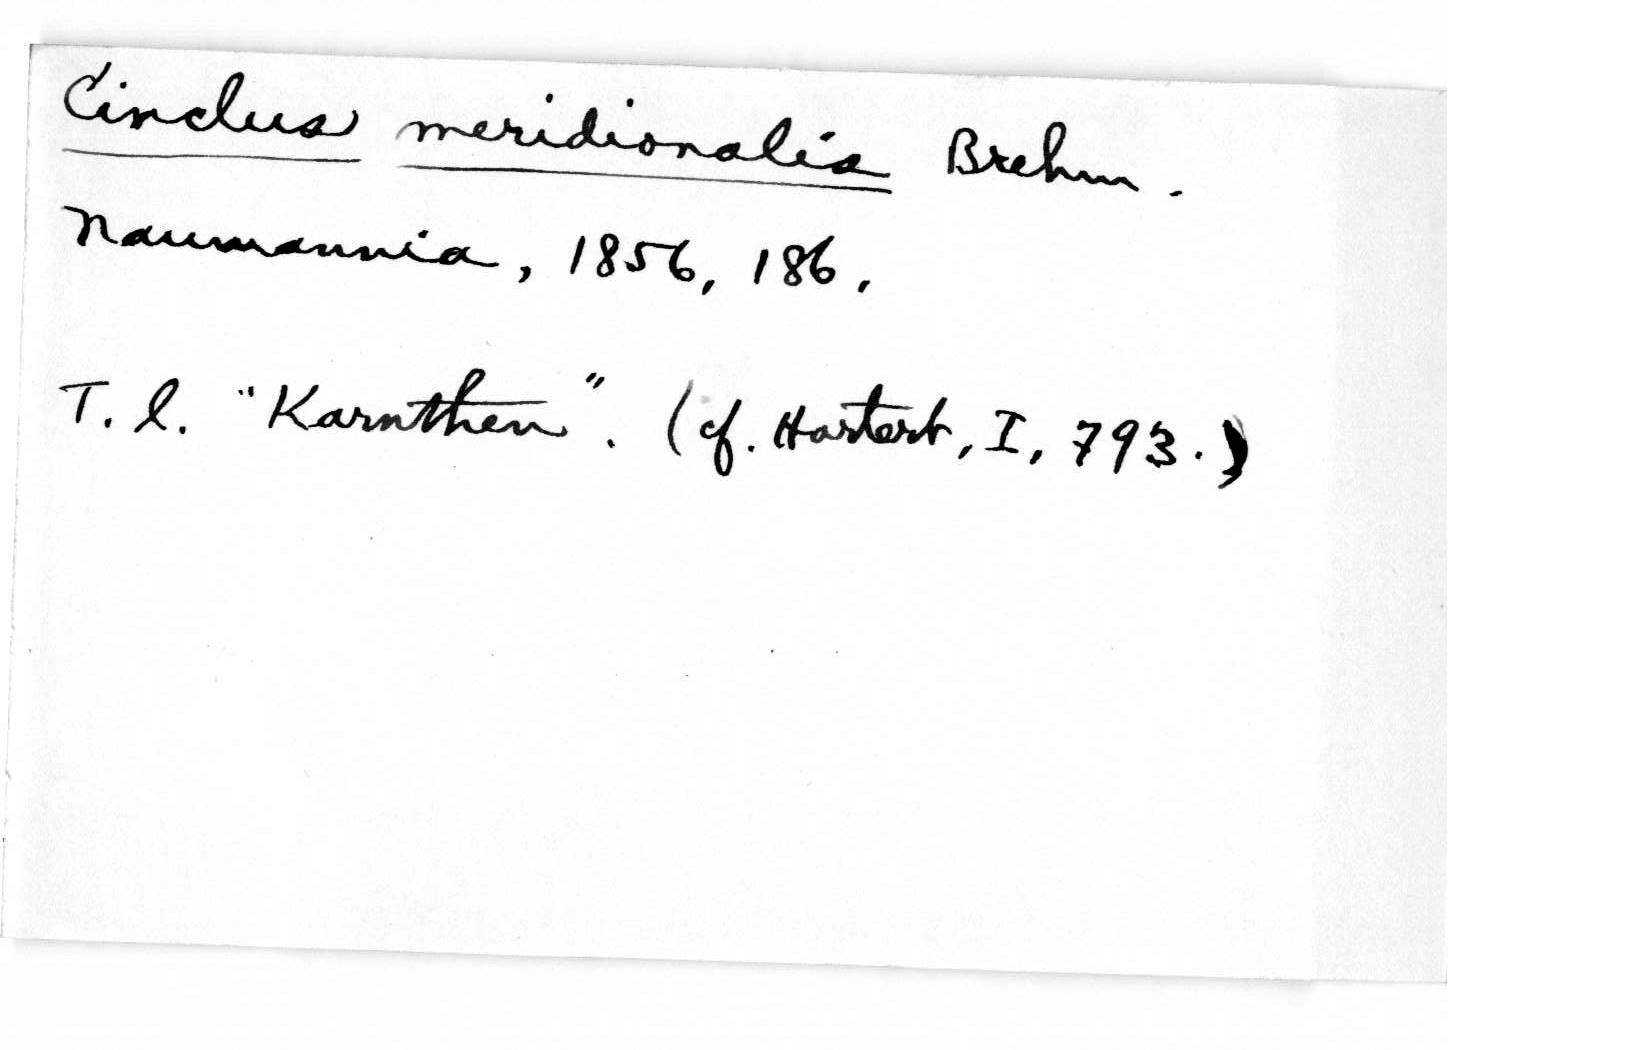 Cinclus meridionalis Brehm.
Naumannia, 1856, 186.
T. l. "Karnthen". (cf. Hartert, I, 793.)